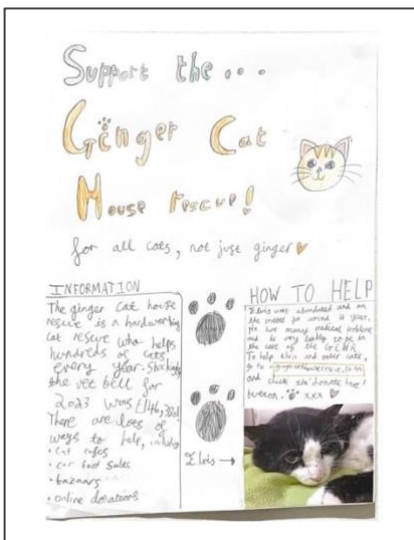 Support the...
Ginger Cat
House rescue!
for all cats, not just ginger
INFORMATION
The ginger cat house
rescue is a hardworking
cat rescue who helps
hundreds of cats
every year. Shockingly
the vet bill for
2023 was £146,
There are lots of
ways to help, including
• cat cafes
• car boot sales
• bazaars
• online donations
Elvis →
HOW TO HELP
Elvis was abandoned and on
the streets for around a year.
He has many medical problems
and is very lucky to be in
the care of the G.C.H.R.
To help Elvis and other cats,
go to
and click the 'donate here'
button. xxx